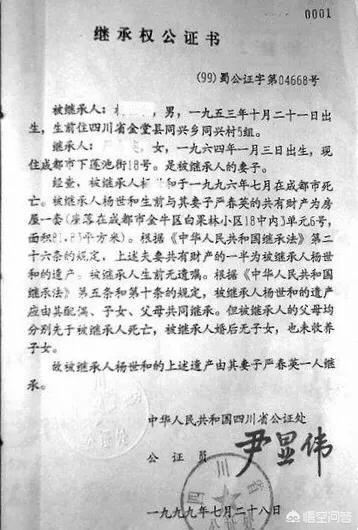 0001
继承权公证书
(99)蜀公证字第04668号
被继承人：　男，一九五三年十月二十一日出
生，生前住四川省金堂县同兴乡同兴村5组。
继承人：　女，一九六四年一月三日出生，现
住成都市下莲池街18号。是被继承人的妻子。
经查，被继承人　和于一九九六年七月在成都市死
亡。被继承人杨世和生前与其妻子严春英的共有财产为房
屋一套(座落在成都市金牛区白果林小区18中内3单元6号，
面积　平方米)。根据《中华人民共和国继承法》第二
十六条的规定，上述夫妻共有财产的一半为被继承人杨世
和的遗产。被继承人生前无遗嘱。根据《中华人民共和国
继承法》第五条和第十条的规定，被继承人杨世和的遗产
应由其配偶、子女、父母共同继承。但被继承人的父母均
分别先于被继承人死亡，被继承人婚后无子女，也未收养
子女。
故被继承人杨世和的上述遗产由其妻子严春英一人继
承。
中华人民共和国四川省公证处
公证员 尹显伟
一九九九年七月二十八日
悟空问答